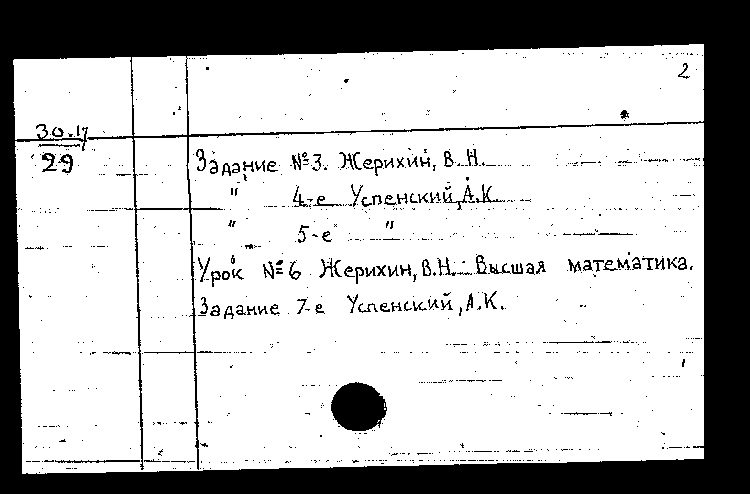 2
30.17
29
Задание №3. Жерихин, В.Н.
" 4-е Успенский, А.К.
" 5-е "
Урок №6 Жерихин, В.Н. Высшая математика.
Задание 7-е Успенский, А.К.